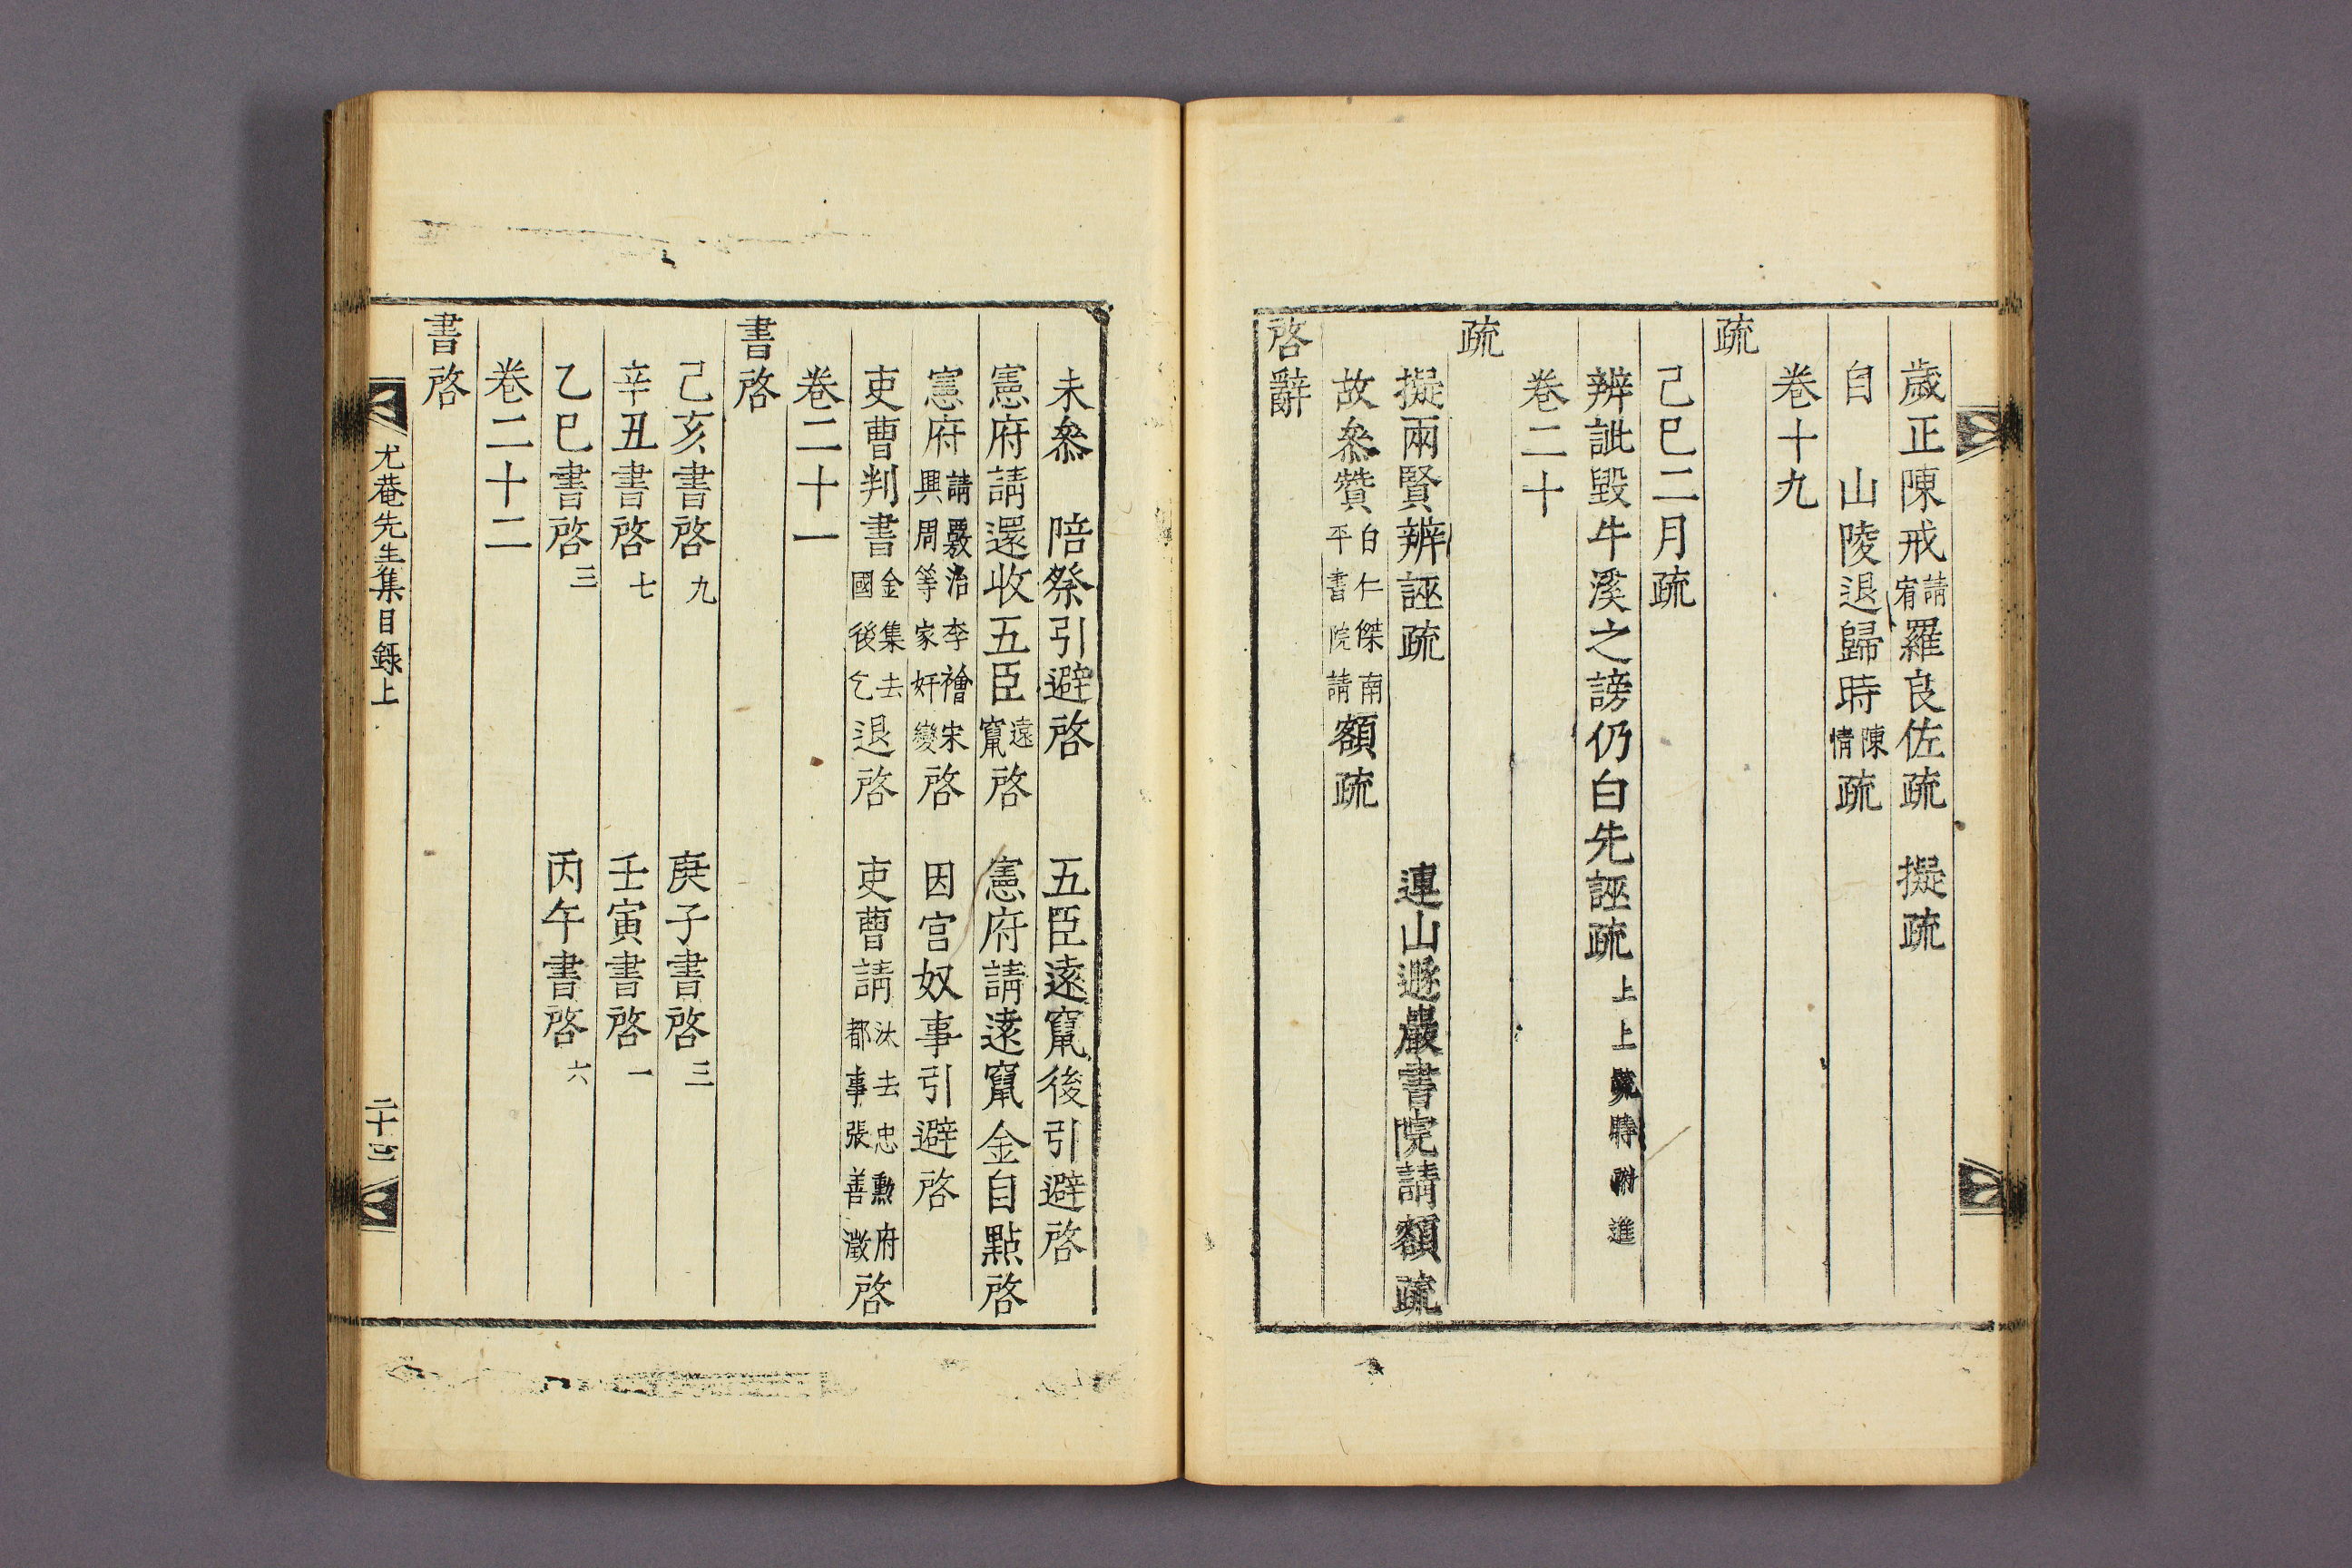 歲正陳戒請宥羅良佐疏　擬疏
自　山陵退歸時陳情疏
卷十九
疏
己巳二月疏
辨訿毀牛溪之謗仍白先誣疏上上疏時附進
卷二十
疏
擬兩賢辨誣疏　連山遯巖書院請額疏
故叅贊白仁傑南平書院請額疏
啓辭
未叅　陪祭引避啓　五臣遠竄後引避啓
憲府請還收五臣遠竄啓　憲府請遠竄金自點啓
憲府請覈治李襘宋興周等家奸變啓　因宮奴事引避啓
吏曹判書金集去國後乞退啓　吏曹請汰去忠勳府都事張善澂啓
卷二十一
書啓
己亥書啓九　庚子書啓三
辛丑書啓七　壬寅書啓一
乙巳書啓三　丙午書啓六
卷二十二
書啓
尤菴先生集目錄上　二十三